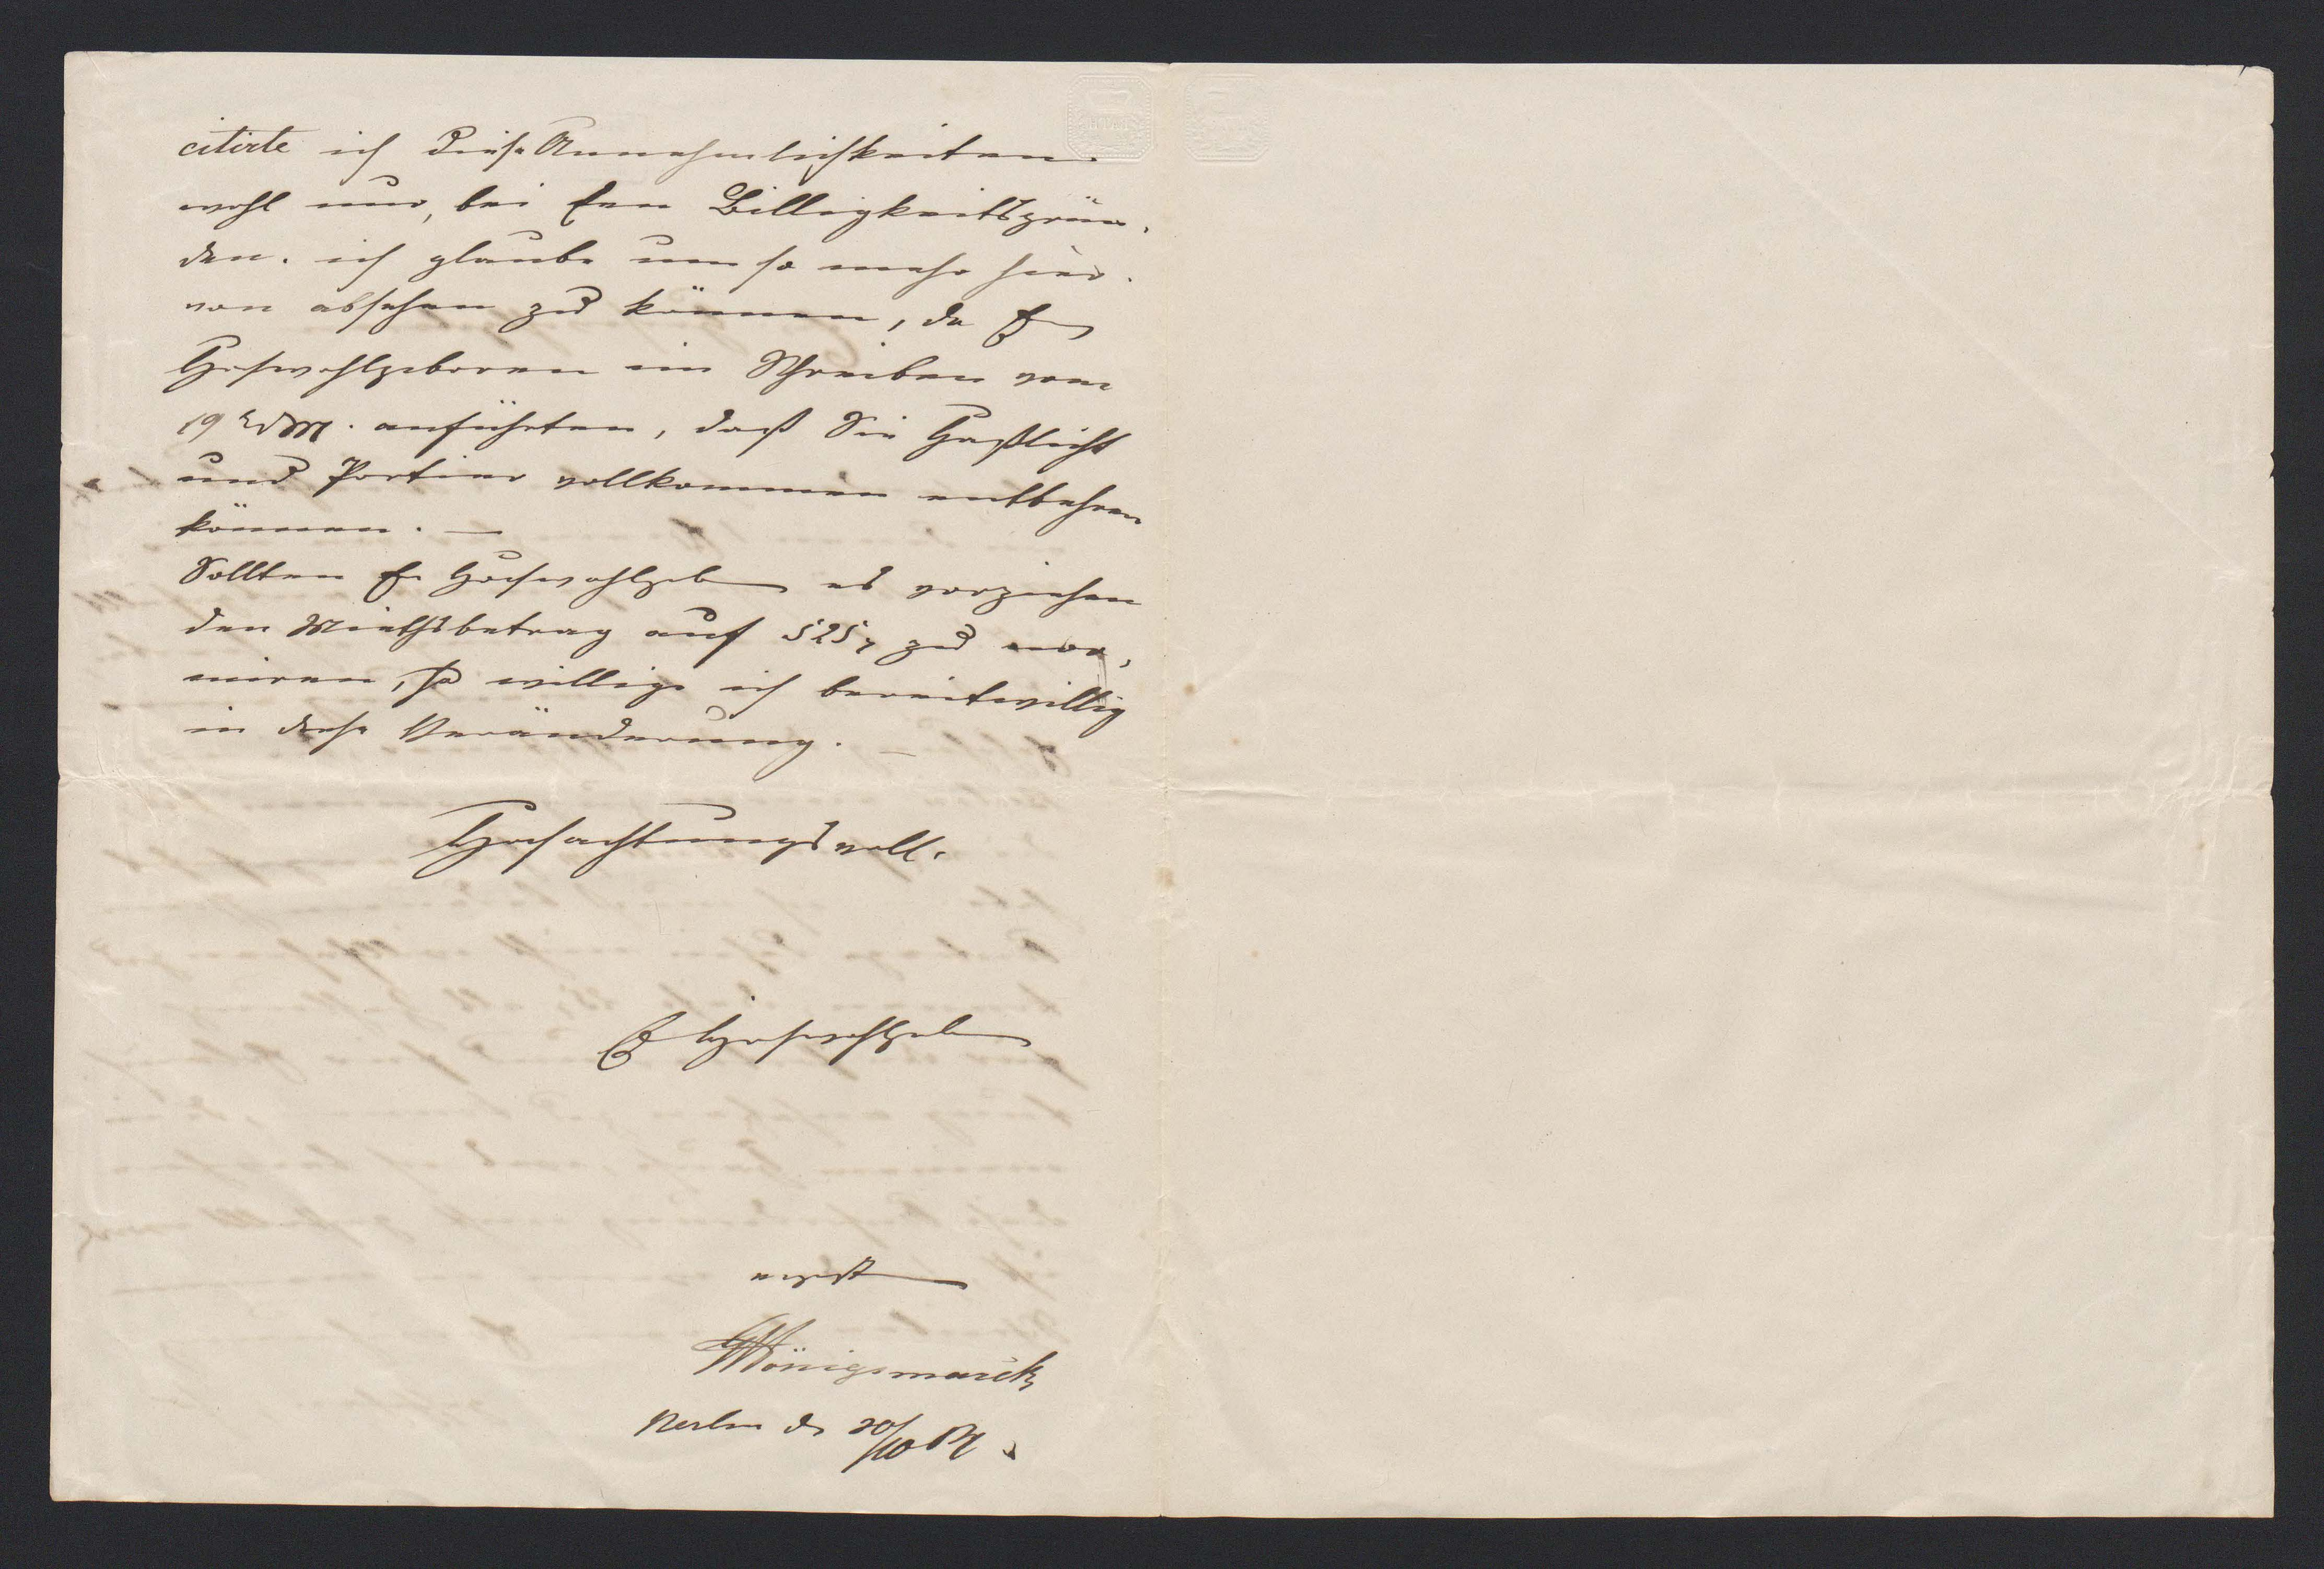 citirte ich diese Annehmlichkeiten
wohl nur, bei den Billigkeitsgrün,
den. ich glaube um so mehr hier.
von absehen zu können, da Ew
Hochwohlgeboren im Schreiben vom
19 d M. anführten, daß Sie Gaslicht
und Portier vollkommen entbehren
können. —
Sollten Ew Hochwohlgeb es vorziehen
den Miethsbetrag auf 525 zu nor,
miren, so willige ich bereitwillig
in diese Veränderung. —
Hochachtungsvoll.
E Hochwohlgeb
Königsmarck
Berlin d 20/10